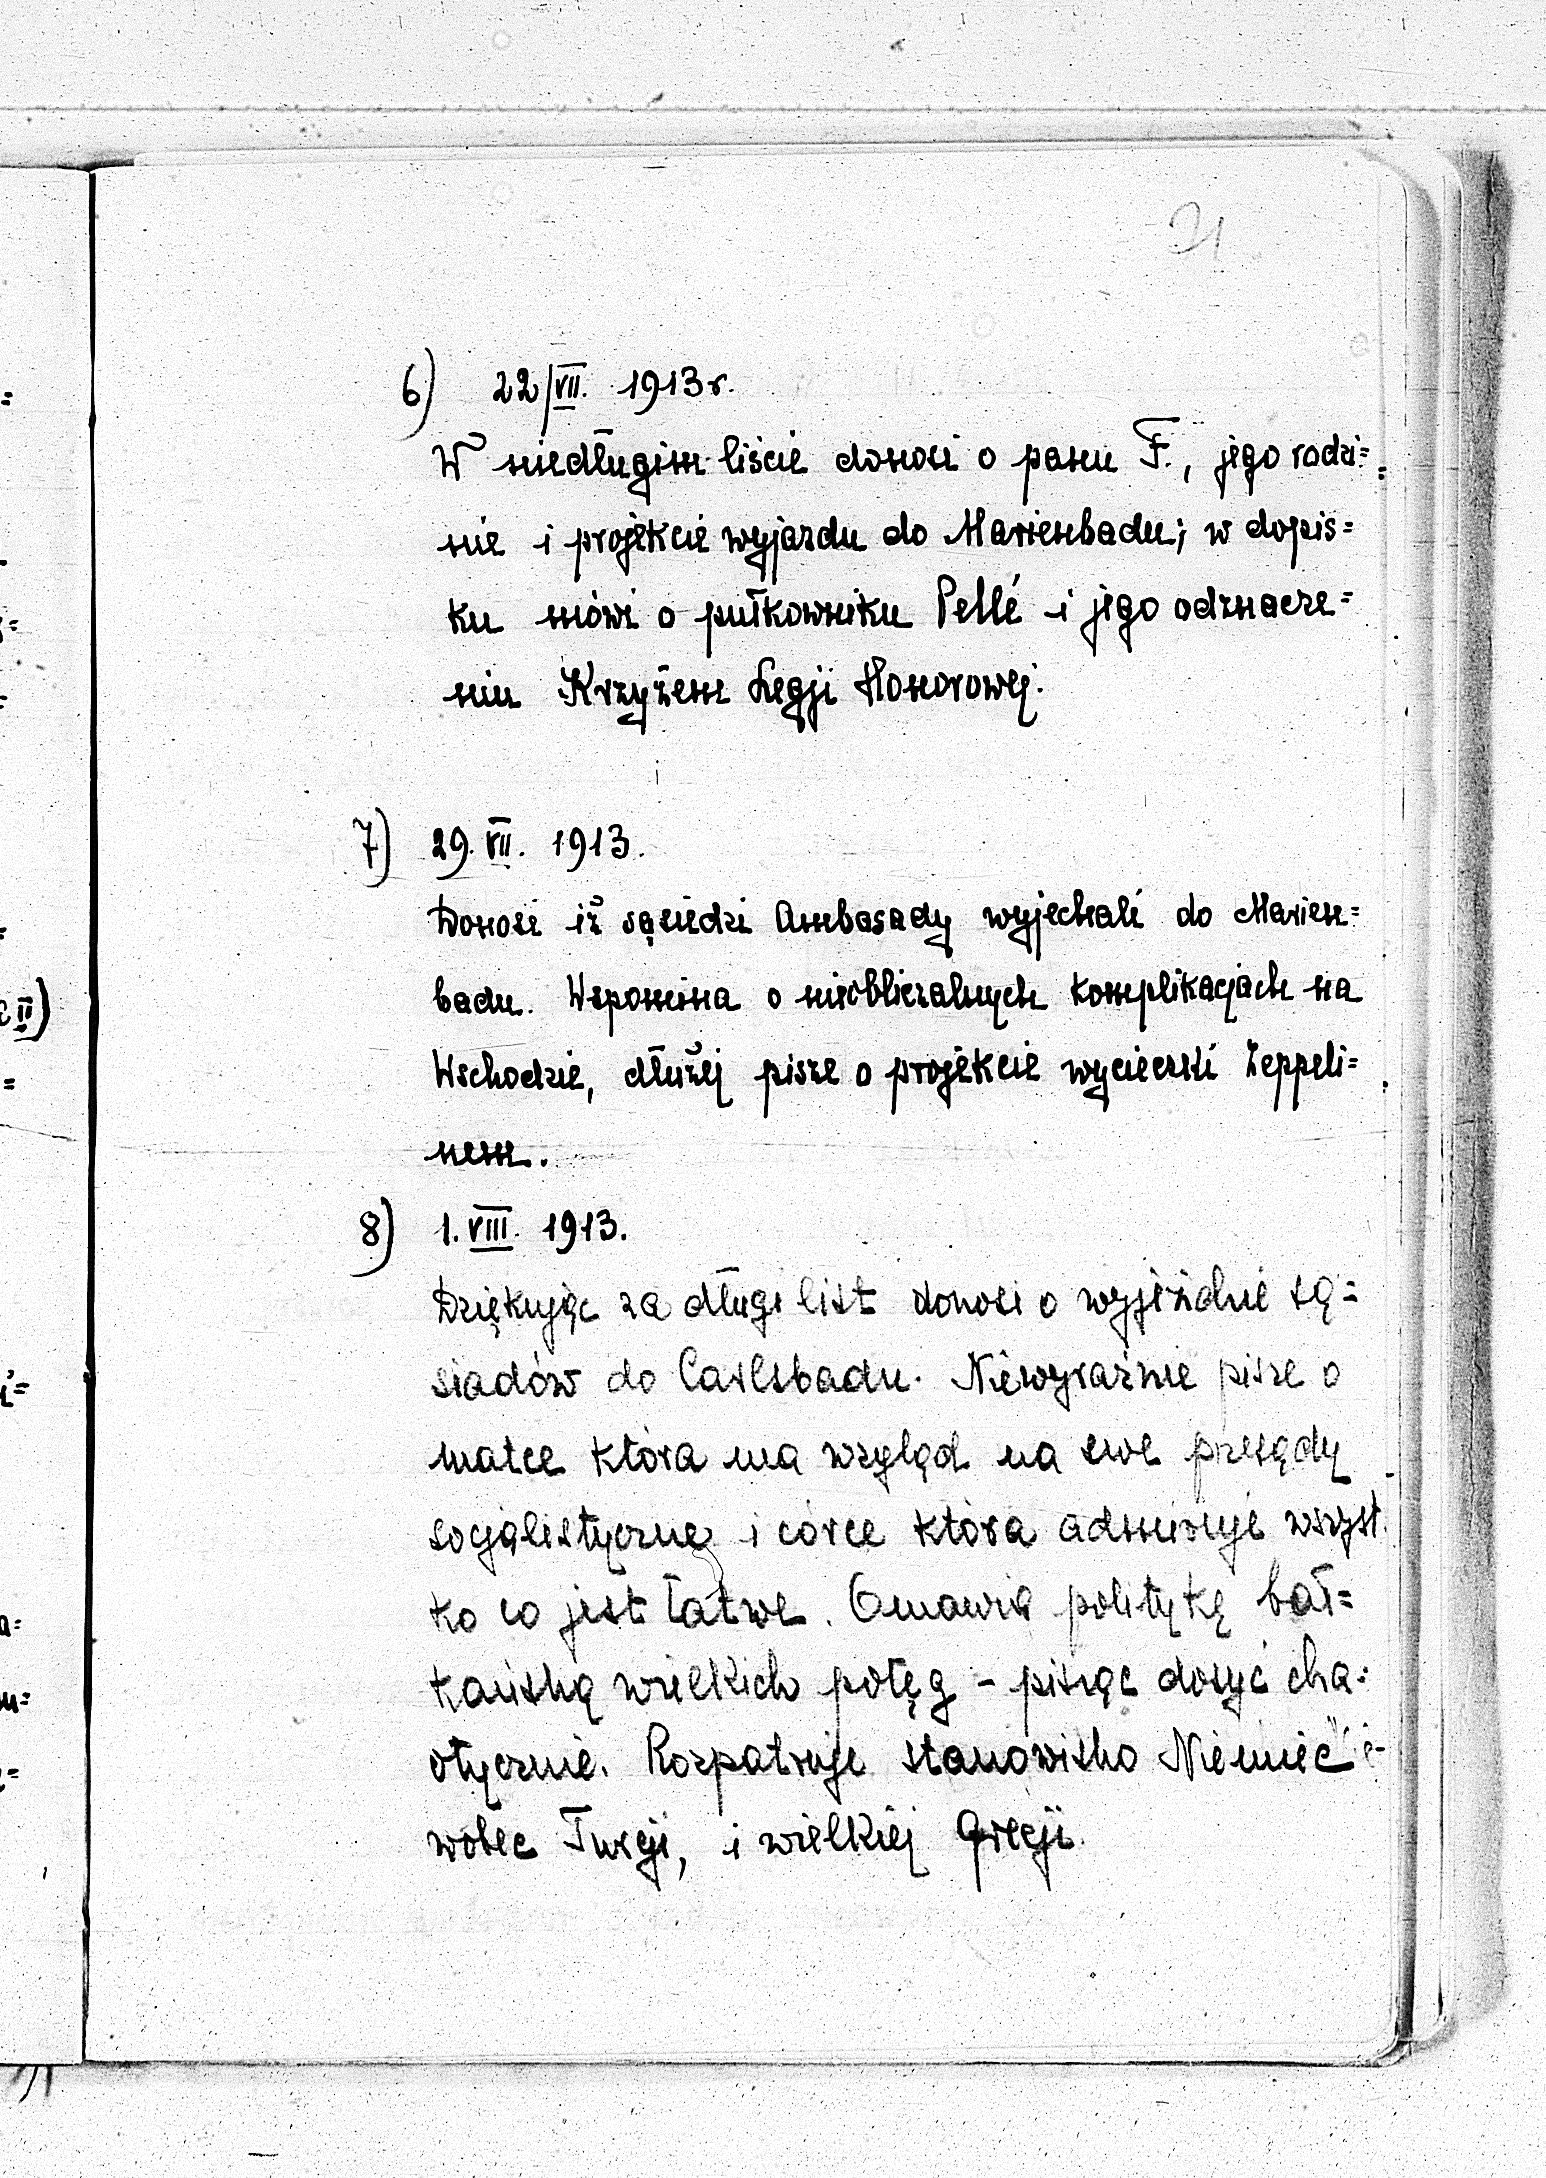 21
6) 22/VII. 1913 r.
W niedługim liście donosi o panu F., jego rodzi=
nie i projekcie wyjazdu do Marienbadu; w dopis=
ku mówi o pułkowniku Pellé i jego odznacze=
niu Krzyżem Legji Honorowej.
7) 29. VII. 1913.
Donosi iż sąsiedzi Ambasady wyjechali do Marien=
badu. Wspomina o nieobliczalnych komplikacjach na
Wschodzie, dłużej pisze o projekcie wycieczki Zeppeli=
nem.
8) 1. VIII. 1913.
Dziękując za długi list donosi o wyjeździe są=
siadów do Carlsbadu. Niewyraźnie pisze o
matce która ma wzgląd na swe przesądy
socjalistyczne i córce która admiruje wszyst
ko co jest łatwe. Omawia politykę bał=
kańską wielkich potęg - pisząc dosyć cha=
otycznie. Rozpatruje stanowisko Niemiec
wobec Turcji, i wielkiej Grecji.